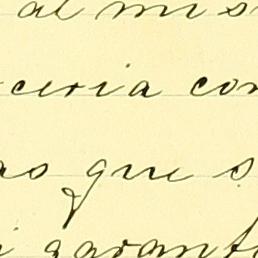 al mis
ceria con
as que s
i garanti